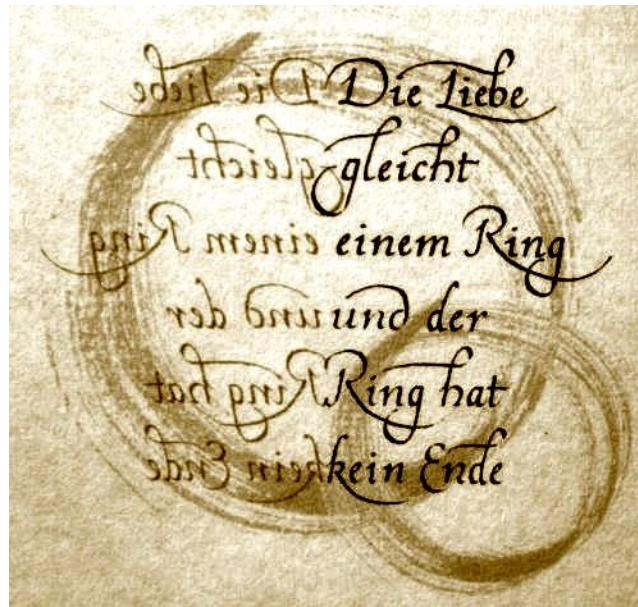 Die Liebe
gleicht
einem Ring
und der
Ring hat
kein Ende